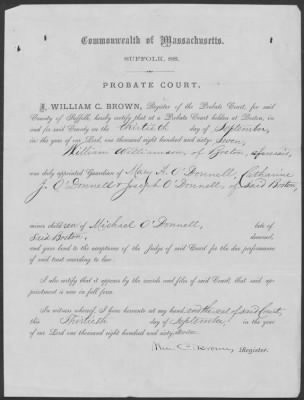 Commonwealth of Massachusetts.
SUFFOLK, SS.
PROBATE COURT.
I, WILLIAM C. BROWN, Register of the Probate Court, for said
County of Suffolk, hereby certify that at a Probate Court holden at Boston, in
and for said County on the thirtieth day of September,
in the year of our Lord, one thousand eight hundred and sixty seven,
William Williamson, of Boston, aforesaid,
was duly appointed Guardian of Mary A. O'Donnell, Catharine
J. O'Donnell & Joseph O'Donnell, of said Boston,
minor children of Michael O'Donnell, late of
said Boston, deceased,
and gave bond to the acceptance of the Judge of said Court for the due performance
of said trust according to law.
I also certify that it appears by the records and files of said Court, that said ap-
pointment is now in full force.
In witness whereof, I have hereunto set my hand and the seal of said Court,
this Thirtieth day of September in the year
of our Lord one thousand eight hundred and sixty-seven.
Wm. C. Brown, Register.